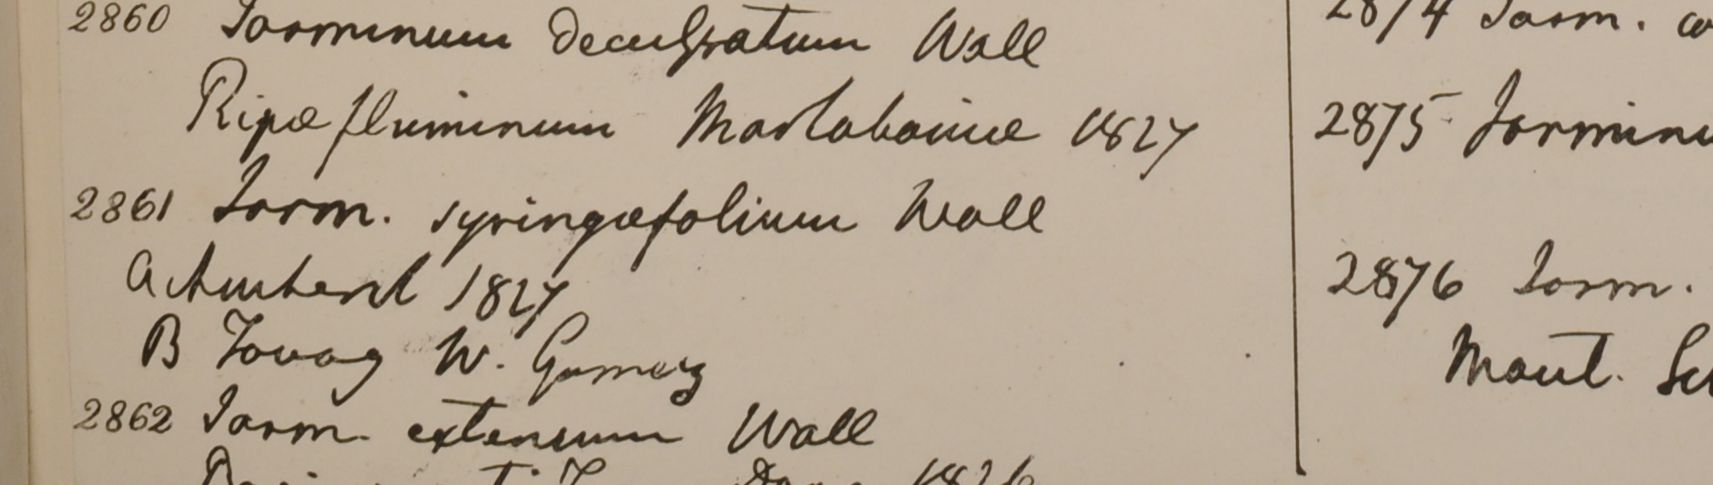 2860 Jasminum decussatum Wall
Ripæ fluminum Martabaniæ 1827
2861 Jasm. syringæfolium Wall
a Amherst 1827
B Tavoy W. Gomez
2862 Jasm. extensum Wall
1826
2874 Jasm.
2875 Jasminu
2876 Jasm.
Mont.